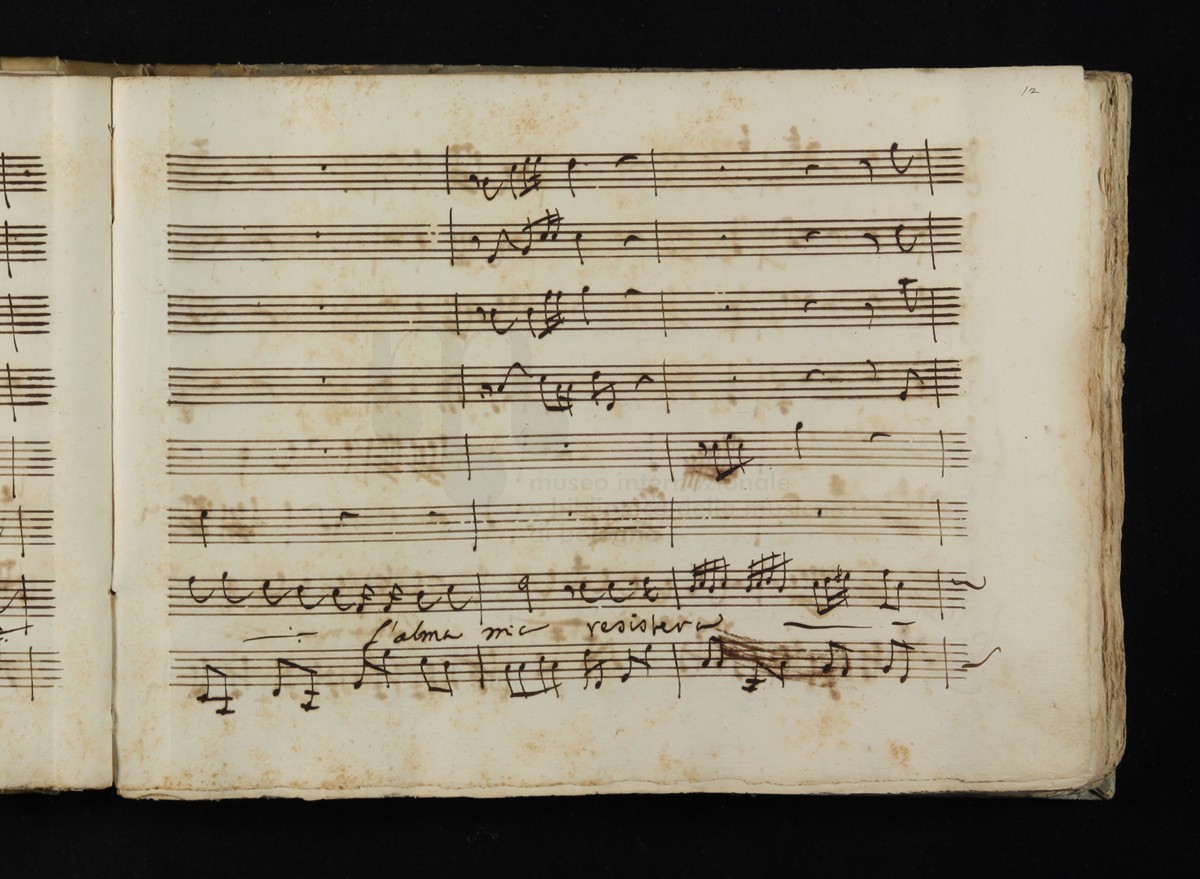 12
museo internazionale
l'alma mia resisterà